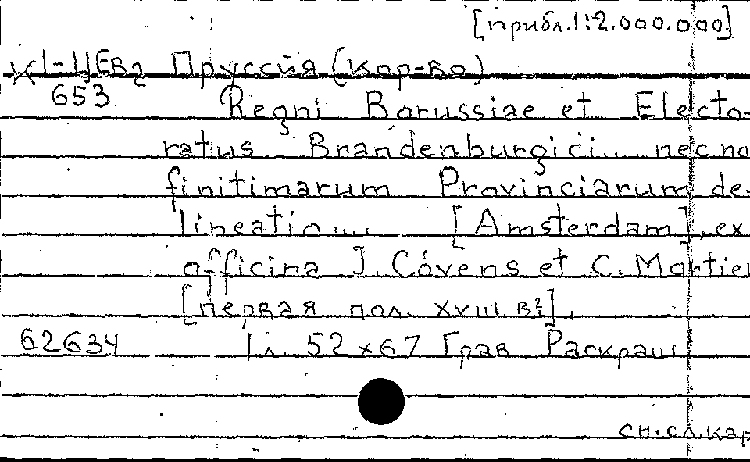 [прибл. 1:2.000.000]
К 1-ЦЕв2 Пруссия (Кор-во)
653 Regni Borussiae et Electo-
ratus Brandenburgici... necno
finitimarum Provinciarum de-
lineatio.... [Amsterdam], ex
officina J. Cóvens et C. Mortier
[первая пол. XVIII в?].
62634 1 л. 52x67 Грав Раскраш
сн.сл.кар